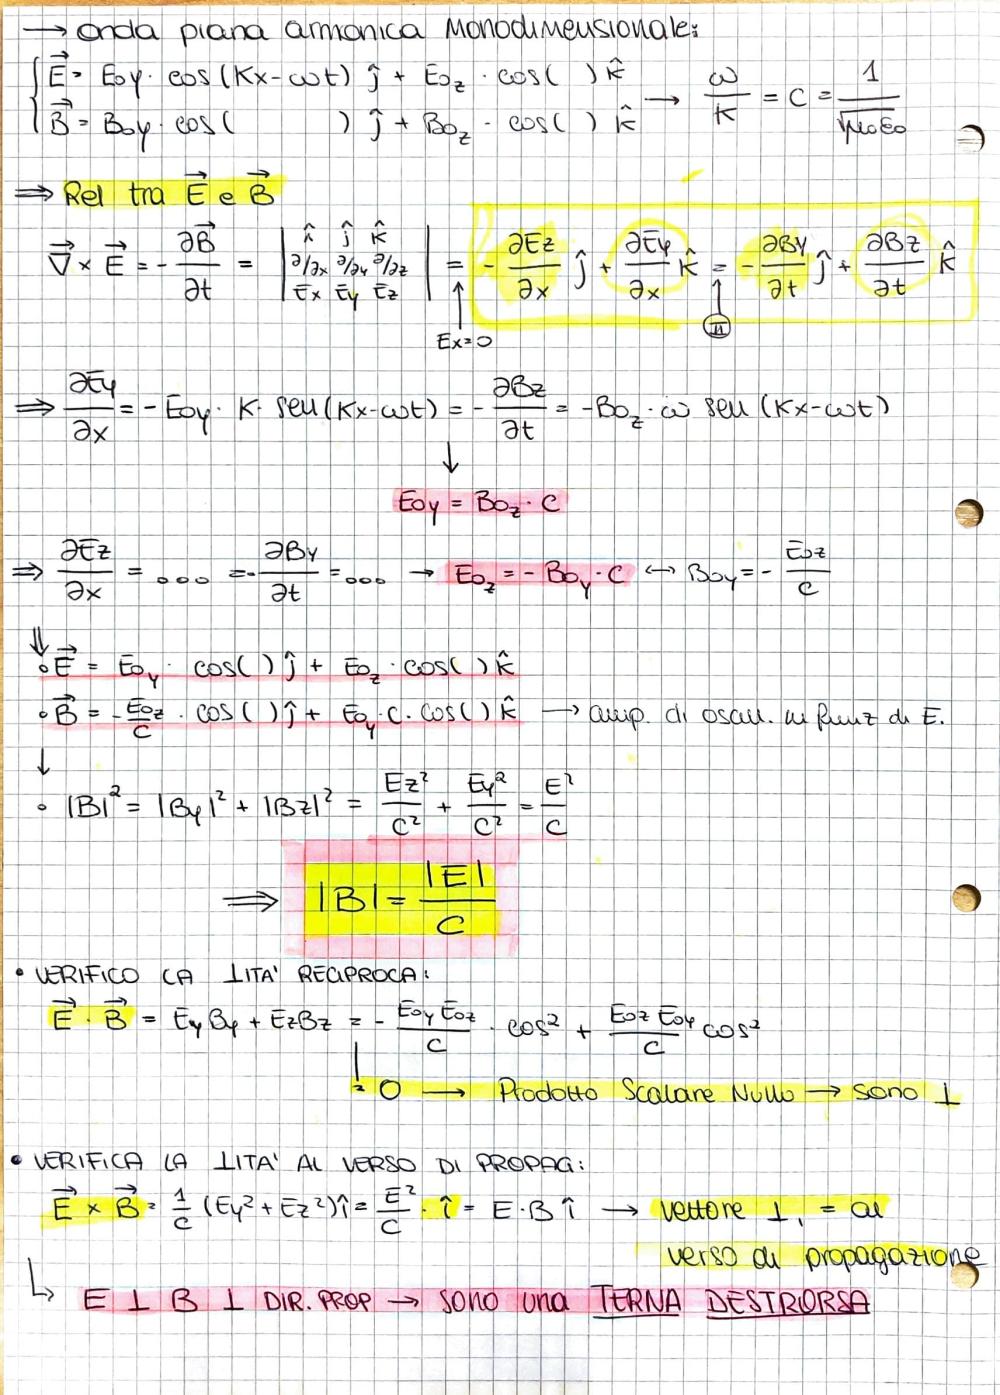 → onda piana armonica Monodimensionale:
E⃗ = Eoy · cos(Kx-ωt) ĵ + Eoz · cos( ) k̂
B⃗ = Boy · cos( ) ĵ + Boz · cos( ) k̂ → ω/K = C = 1/√μoεo
⇒ Rel tra E⃗ e B⃗
∇⃗ × E⃗ = - ∂B⃗/∂t = | î ĵ k̂ ; ∂/∂x ∂/∂y ∂/∂z ; Ex Ey Ez | = - ∂Ez/∂x ĵ + ∂Ey/∂x k̂ = - ∂By/∂t ĵ + ∂Bz/∂t k̂
Ex=0 II
⇒ ∂Ey/∂x = - Eoy · K · sen(Kx-ωt) = - ∂Bz/∂t = -Boz · ω sen (Kx-ωt)
↓
Eoy = Boz · C
⇒ ∂Ez/∂x = ... = - ∂By/∂t = ... → Eoz = - Boy · C ↔ Boy = - Eoz/C
⇓
• E⃗ = Eoy · cos( ) ĵ + Eoz · cos( ) k̂
• B⃗ = - Eoz/C · cos( ) ĵ + Eoy · C · cos( ) k̂ → amp. di oscill. in funz di E.
↓
• |B|² = |By|² + |Bz|² = Ez²/C² + Ey²/C² = E²/C
⇒ |B| = |E|/C
• VERIFICO LA ⊥ITA' RECIPROCA:
E⃗ · B⃗ = Ey By + Ez Bz = - Eoy Eoz/C · cos² + Eoz Eoy/C cos²
= 0 → Prodotto Scalare Nullo → sono ⊥
• VERIFICA LA ⊥ITA' AL VERSO DI PROPAG:
E⃗ × B⃗ = 1/C (Ey² + Ez²) î = E²/C · î = E·B î → vettore ⊥, = al
verso di propagazione
↳ E ⊥ B ⊥ DIR. PROP → sono una TERNA DESTRORSA